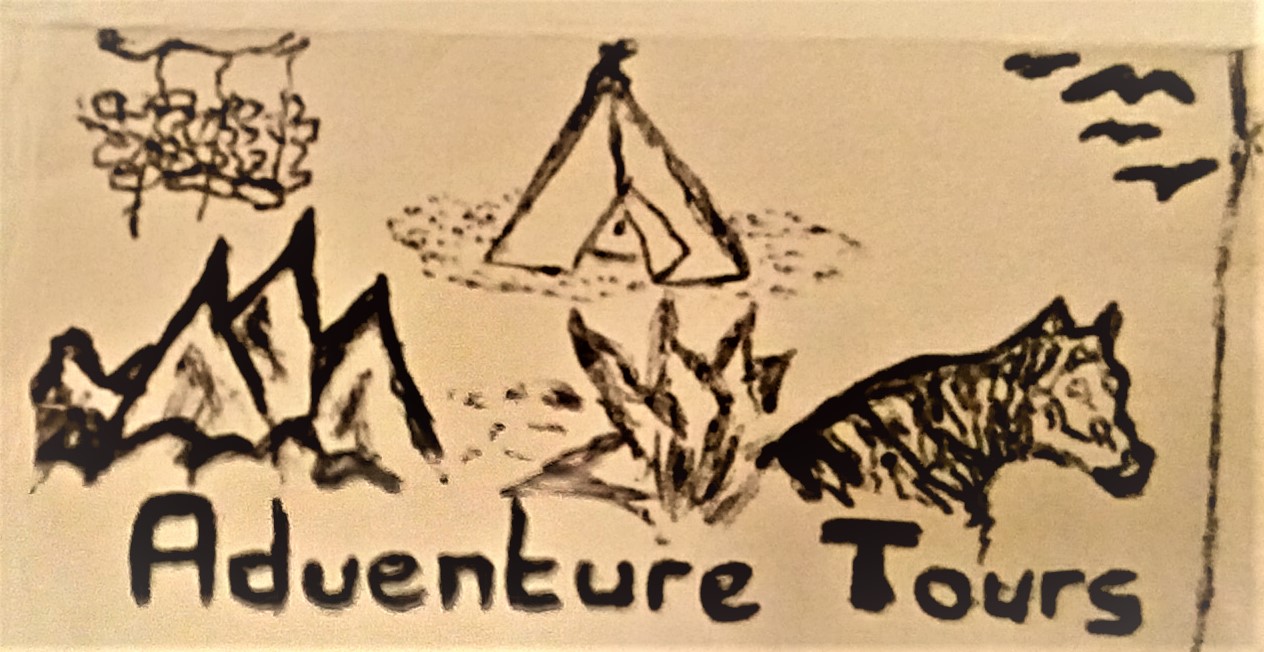 Adventure Tours